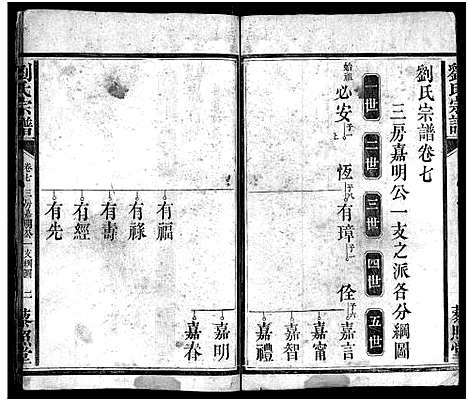 劉氏宗譜
劉氏宗譜卷七
三房嘉明公一支之派各分綱圖
一世 二世 三世 四世 五世
始祖 必安 子一 恆 子六 有璋 子一 佺 子六 嘉言
嘉甯
嘉智
嘉禮
嘉明
嘉春
有福
有祿
有壽
有經
有先
劉氏宗譜
卷七 三房嘉明公一支綱圖 二 藜照堂